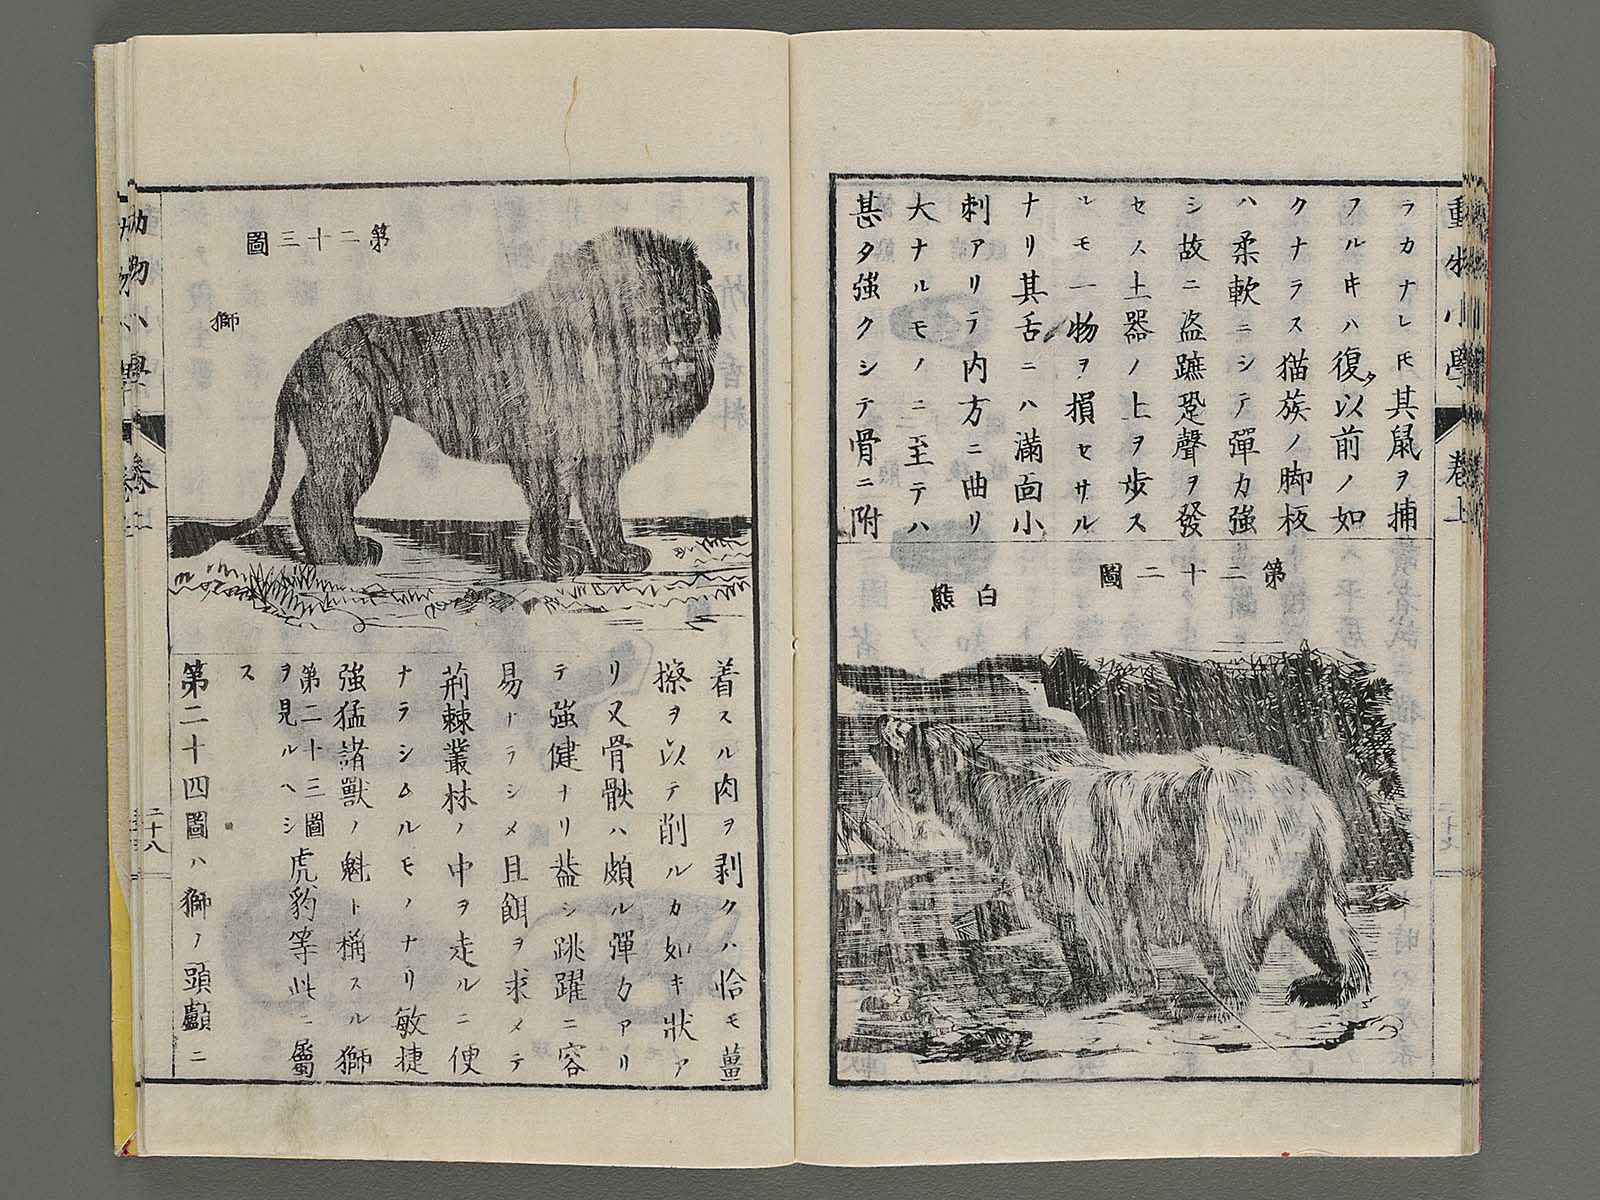 動物小學 卷上
ラカナレ𪜈其鼠ヲ捕
フル𪜈ハ復タ以前ノ如
クナラス猫族ノ脚板
ハ柔軟ニシテ彈力強
シ故ニ盗蹠跫聲ヲ發
セス土器ノ上ヲ歩ス
ルモ一物ヲ損セサル
ナリ其舌ニハ滿面小
刺アリテ内方ニ曲リ
大ナルモノニ至テハ
甚タ強クシテ骨ニ附
第二十二圖
白熊
第二十三圖
獅
着スル肉ヲ剥クハ恰モ薑
擦ヲ以テ削ルカ如キ狀ア
リ又骨骸ハ頗ル彈力アリ
テ強健ナリ蓋シ跳躍ニ容
易ナラシメ且餌ヲ求メテ
荊棘叢林ノ中ヲ走ルニ便
ナラシムルモノナリ敏捷
強猛諸獸ノ魁ト稱スル獅
第二十三圖ヲ見ルヘシ虎豹等此ニ屬
ス
第二十四圖ハ獅ノ頭顱ニ
二十八